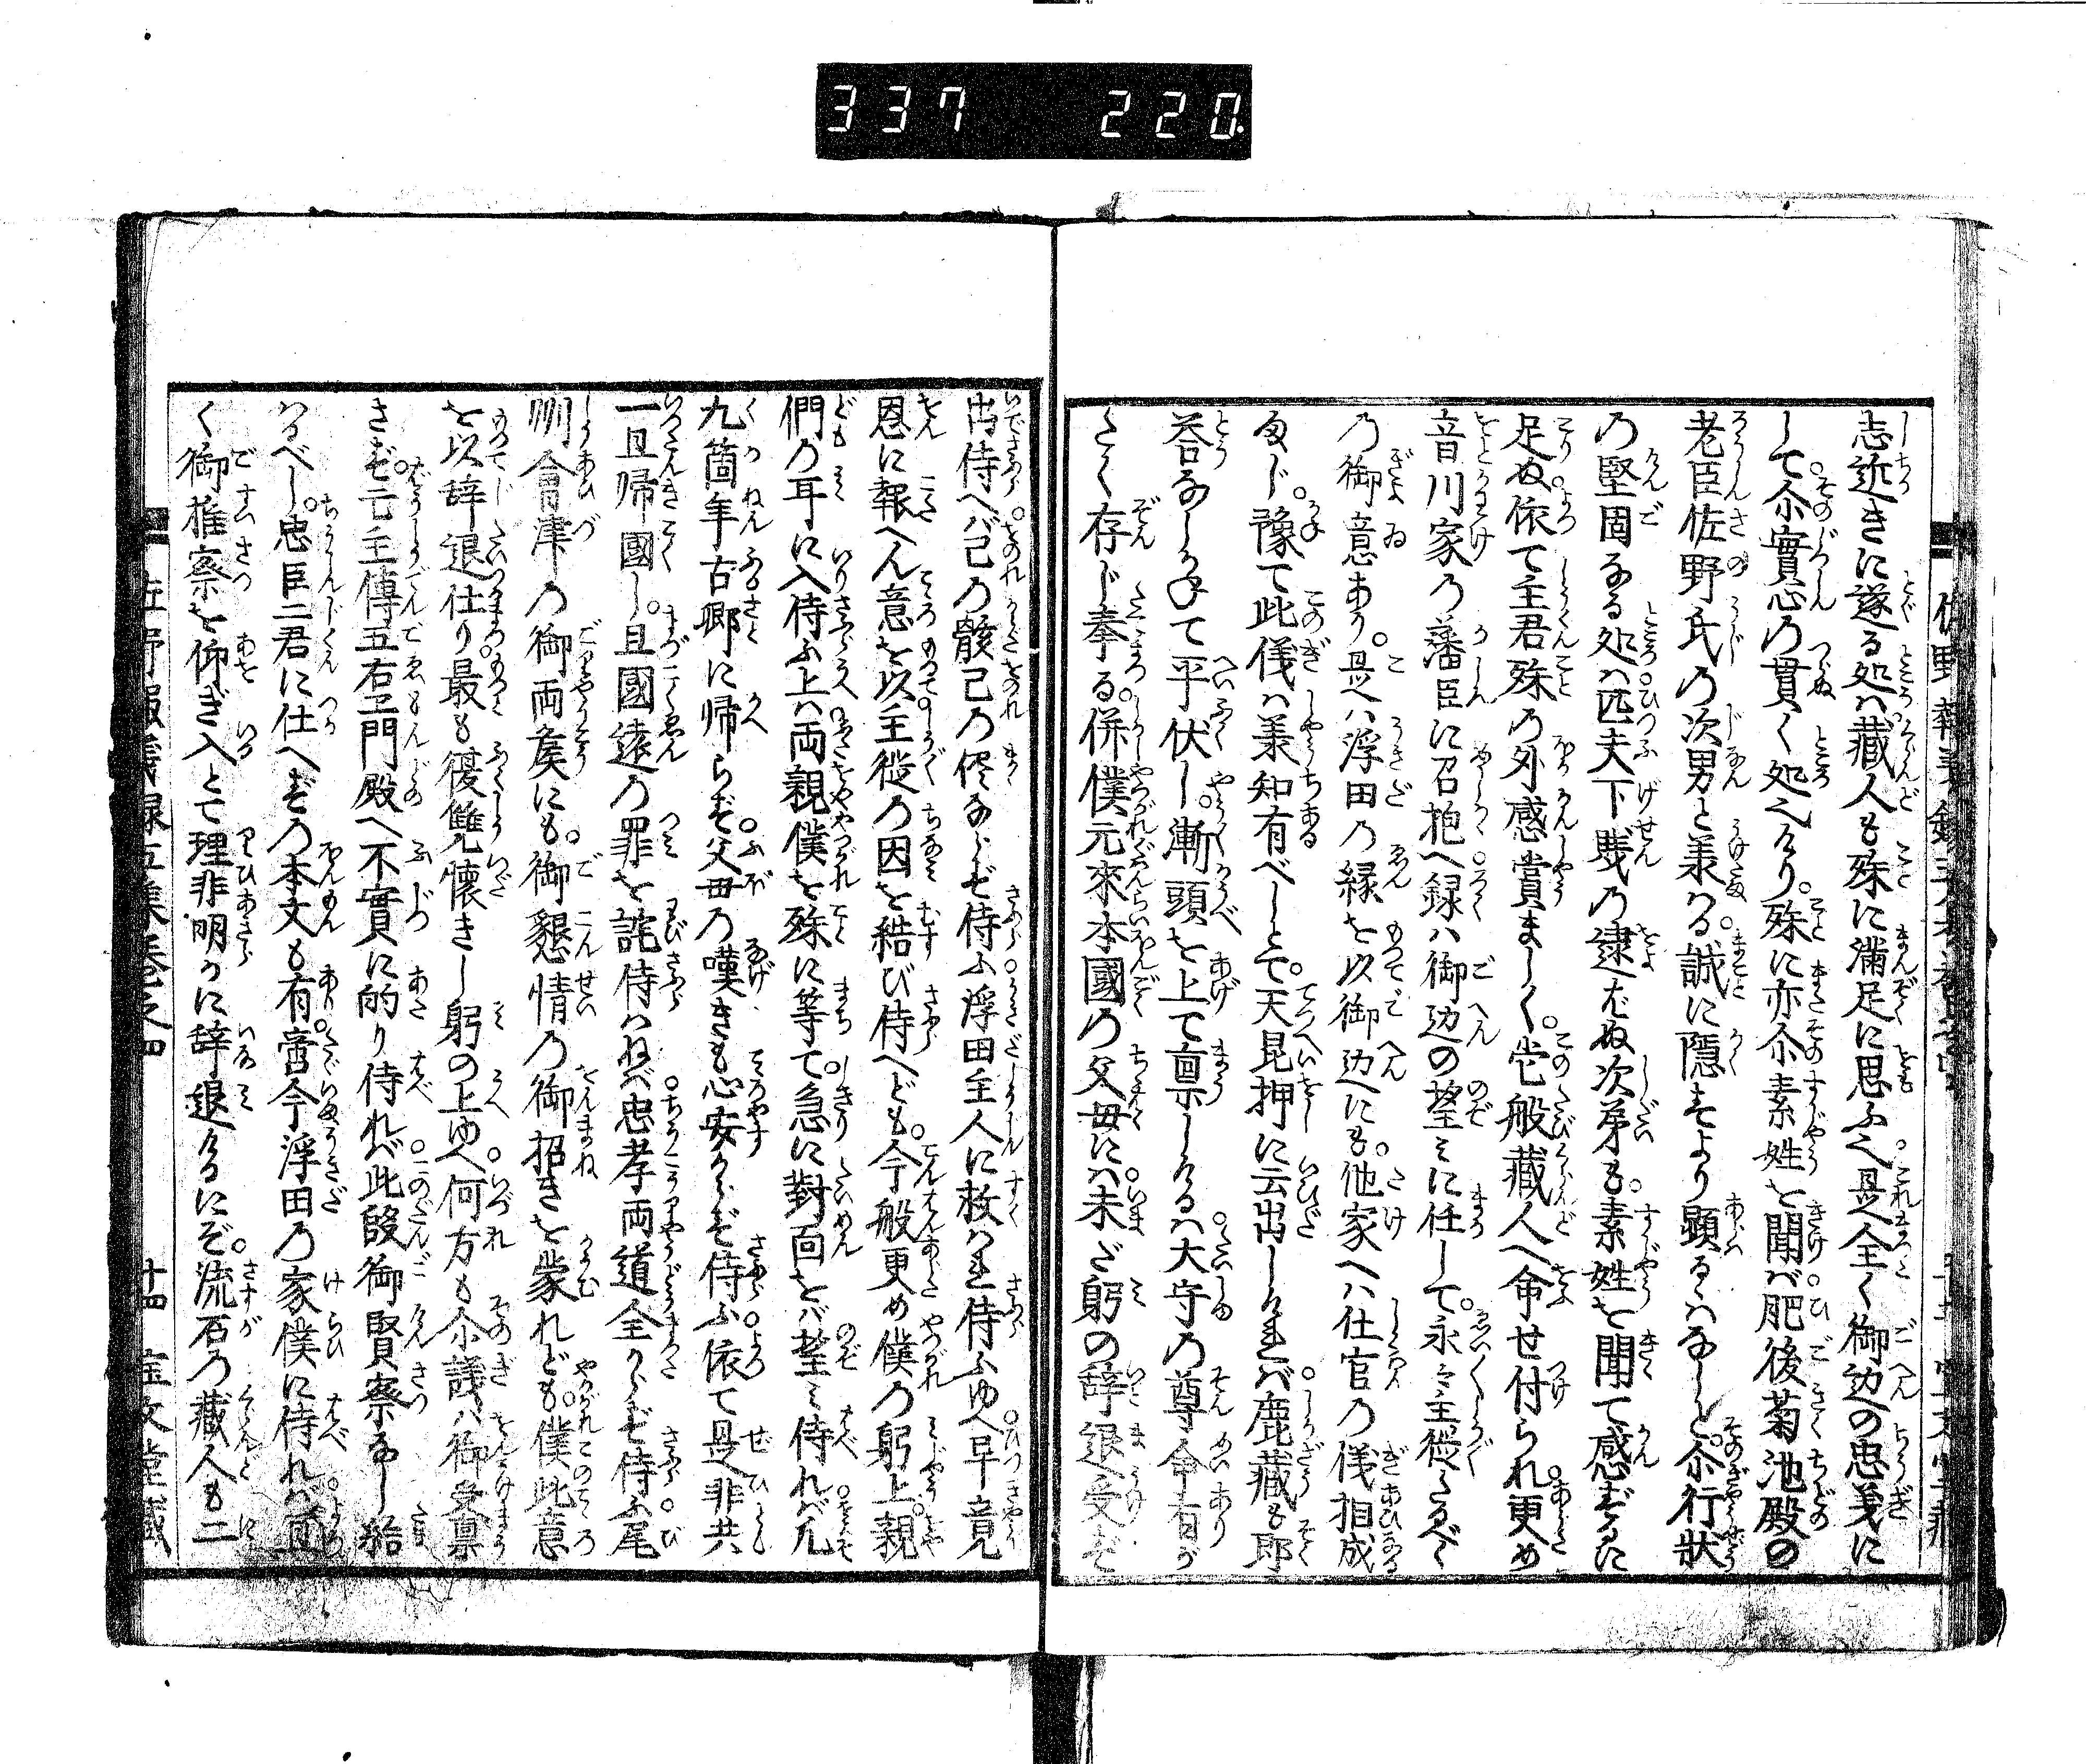 337 220
志近きに遂る処ハ藏人も殊に滿足に思ふ也是全く御辺の忠義に
して尒實心の貫く処也けり。殊に亦尒素姓を聞バ肥後菊池殿の
老臣佐野氏の次男と羕ハる誠に隠るより顕るゝハなしと。尒行狀
の堅固なる処ハ匹夫下賤の逮バぬ次第も。素姓を聞て感ずるに
足ぬ依て主君殊の外感賞まし〳〵。這般藏人へ命せ付られ更め
音川家の藩臣に召抱へ録ハ御辺の望ミに任して。永々主從たるべく
の御意あり。是ハ浮田の縁を以御辺にも。他家へハ仕官の儀相成
まじ。豫て此儀ハ羕知有べしとて。天昆押に云出しけれバ鹿藏も即
答なしかねて平伏し。漸頭を上て稟しけるハ大守の尊命有が
たく存じ奉る。併僕元來本國の父母にハ未ざ躬の辞退受ず
出侍へバ己の骸己の侭ならず侍ふ浮田主人に救ハれ侍ふゆへ早竟
恩に報へん意を以主從の因を結び侍へども。今般更め僕の躬上。親
們の耳に入侍ふ上ハ両親僕を殊に等て急に對面をバ望ミ侍れバ凡
九箇年古郷に帰らず父母の嘆きも心安からず侍ふ依て是非共
一旦帰國し。且國遠の罪を詫侍ハねバ忠孝両道全からず侍ふ尾
刕會津の御両矦にも。御懇情の御招きを蒙れども。僕此意
を以辞退仕り最も復讐懷きし躬の上ゆへ何方も尒議ハ御受稟
さず元主傳五右エ門殿へ不實に的り侍れバ此段御賢察なし給
ハるべし。忠臣二君に仕へずの本文も有。啻今浮田の家僕に侍れバ宜
く御推察を仰ぎ入とて理非明かに辞退けるにぞ。流石の藏人も二
佐野報義録五集巻之四 十四 宝文堂藏